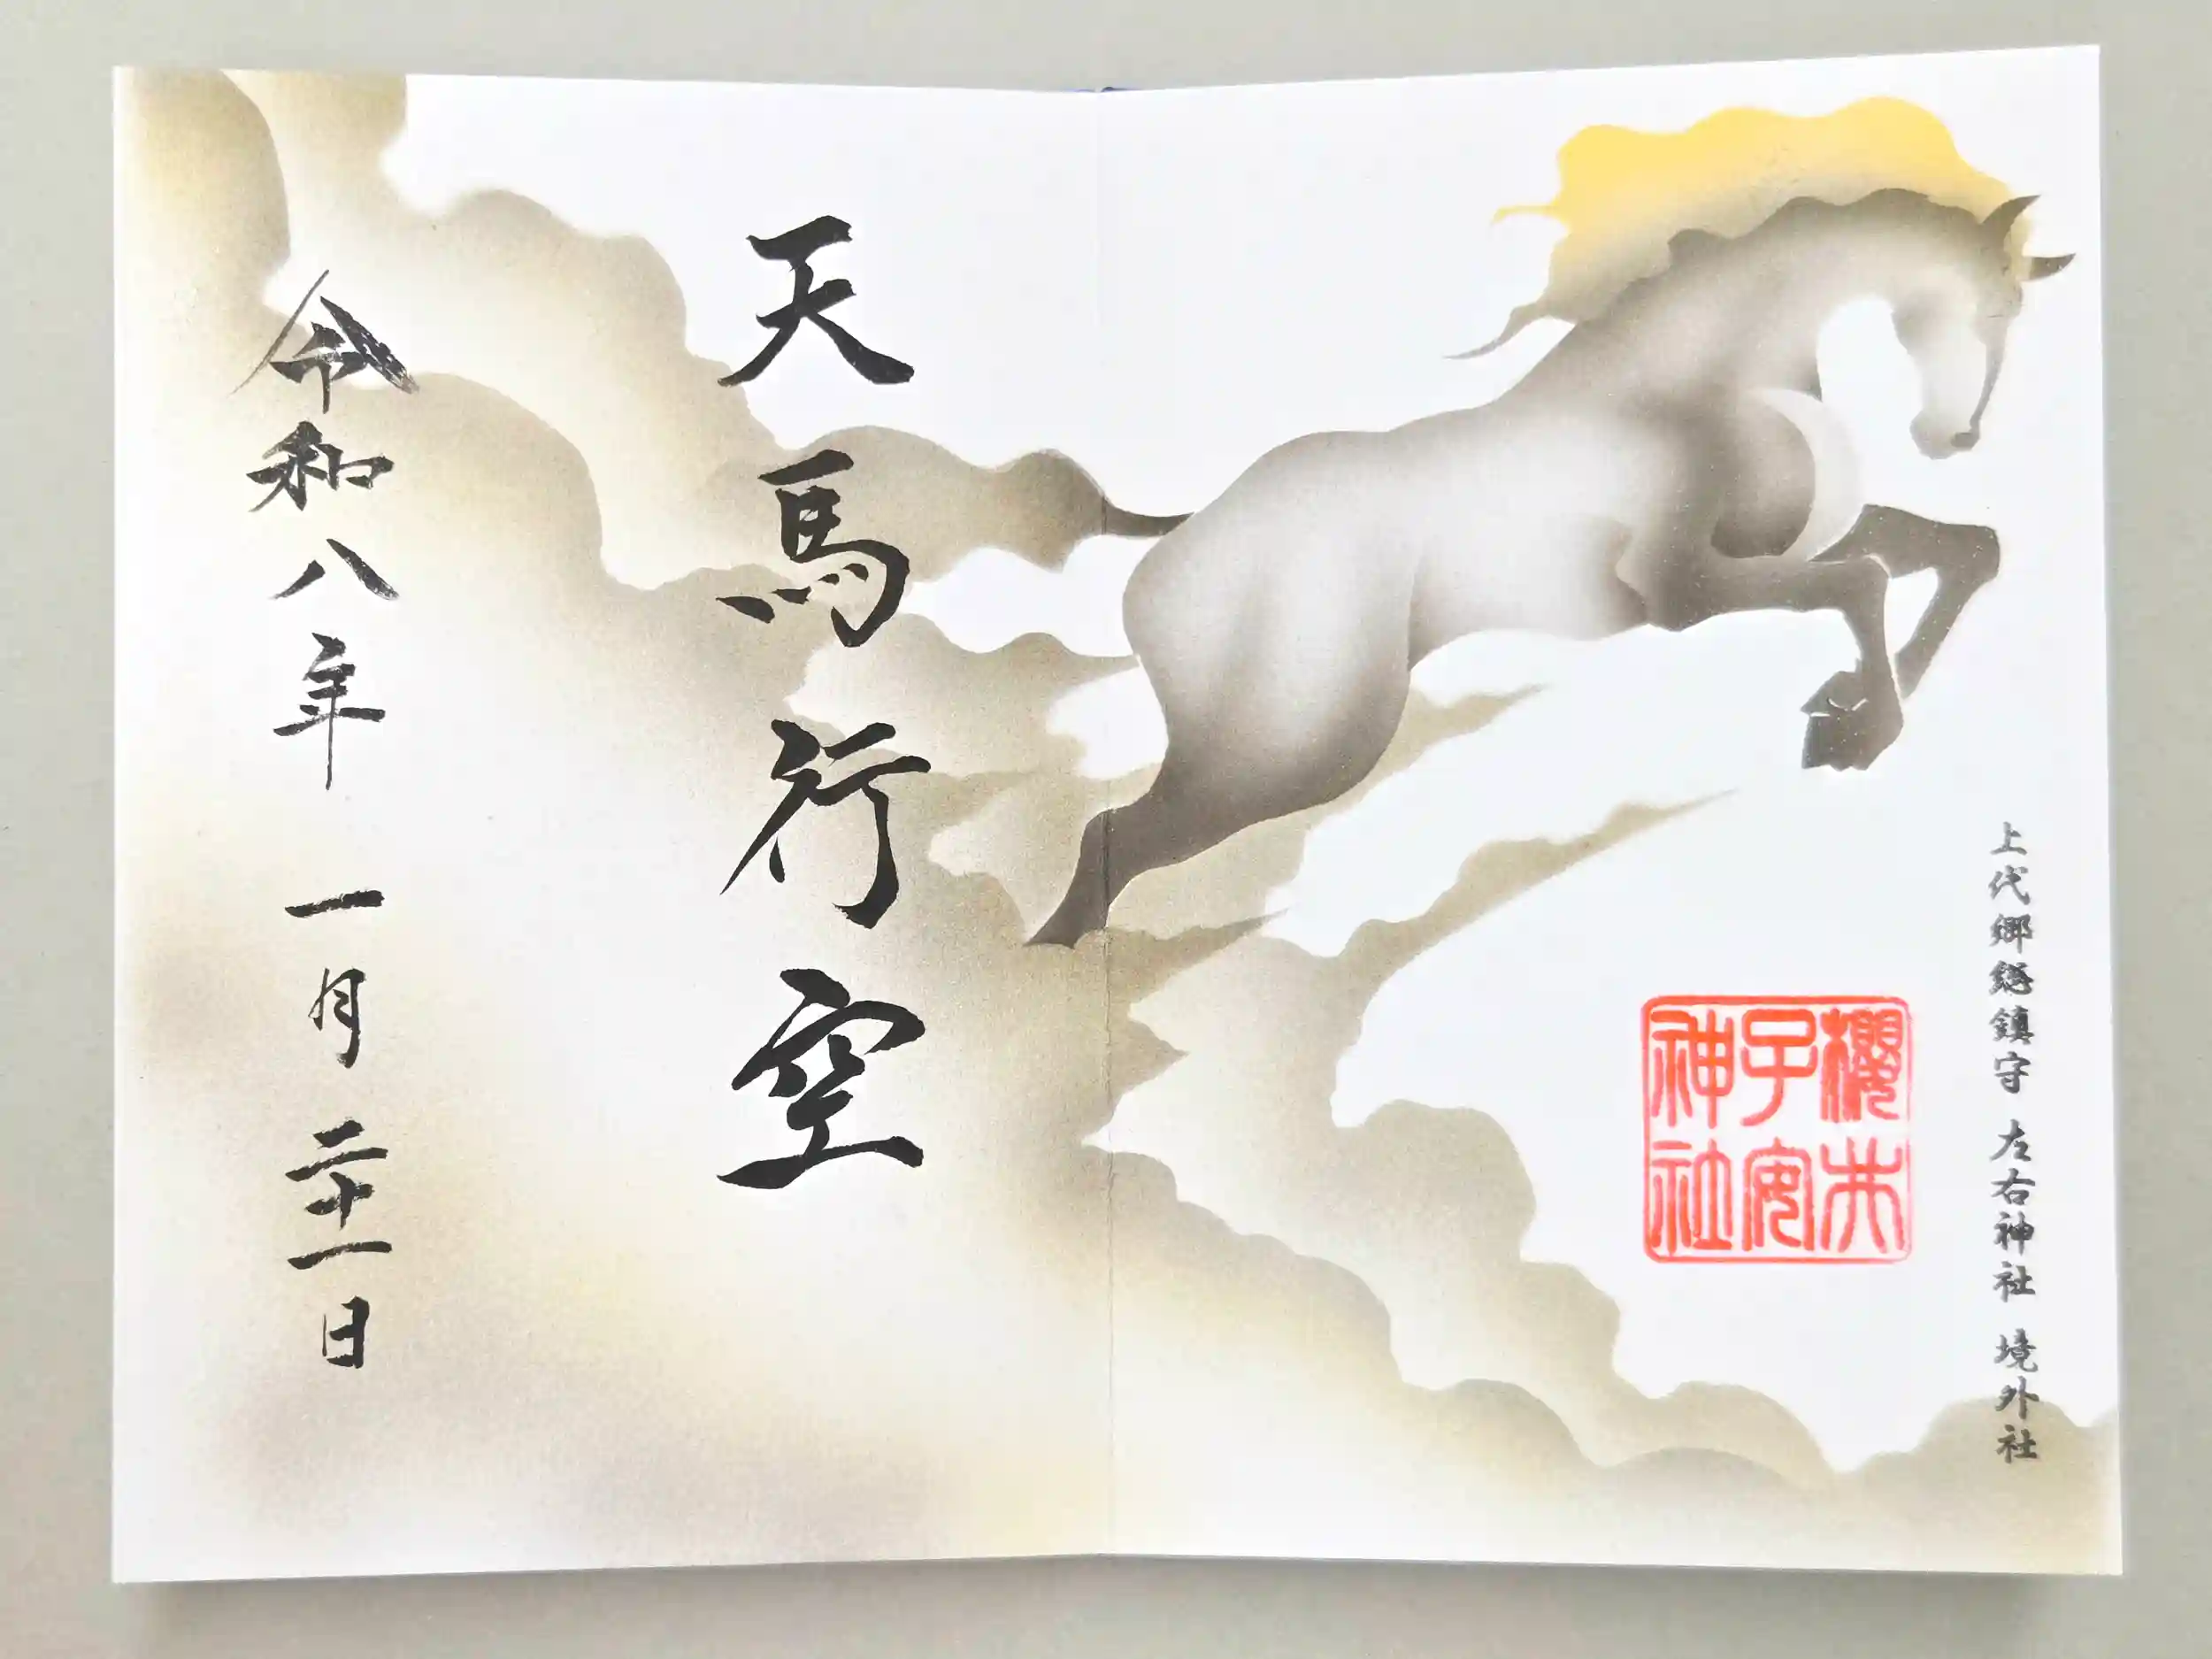 上代郷総鎮守 左右神社 境外社
櫻井
子安
神社
天馬行空
令和八年 一月二十一日